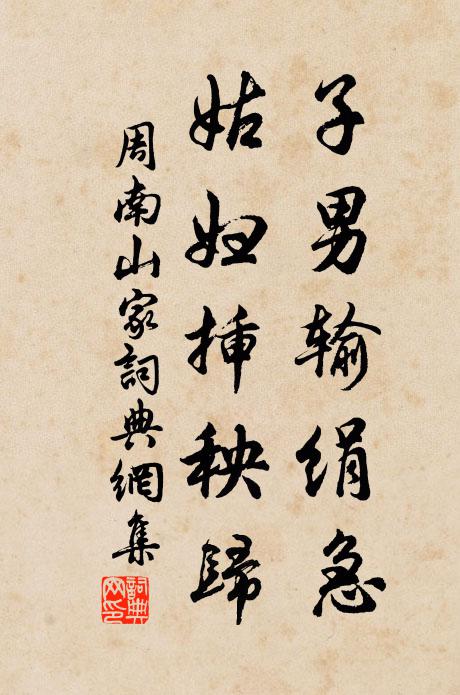 子男输绢急
姑妇揷秧歸
周南山家詞典網集
詞典網印